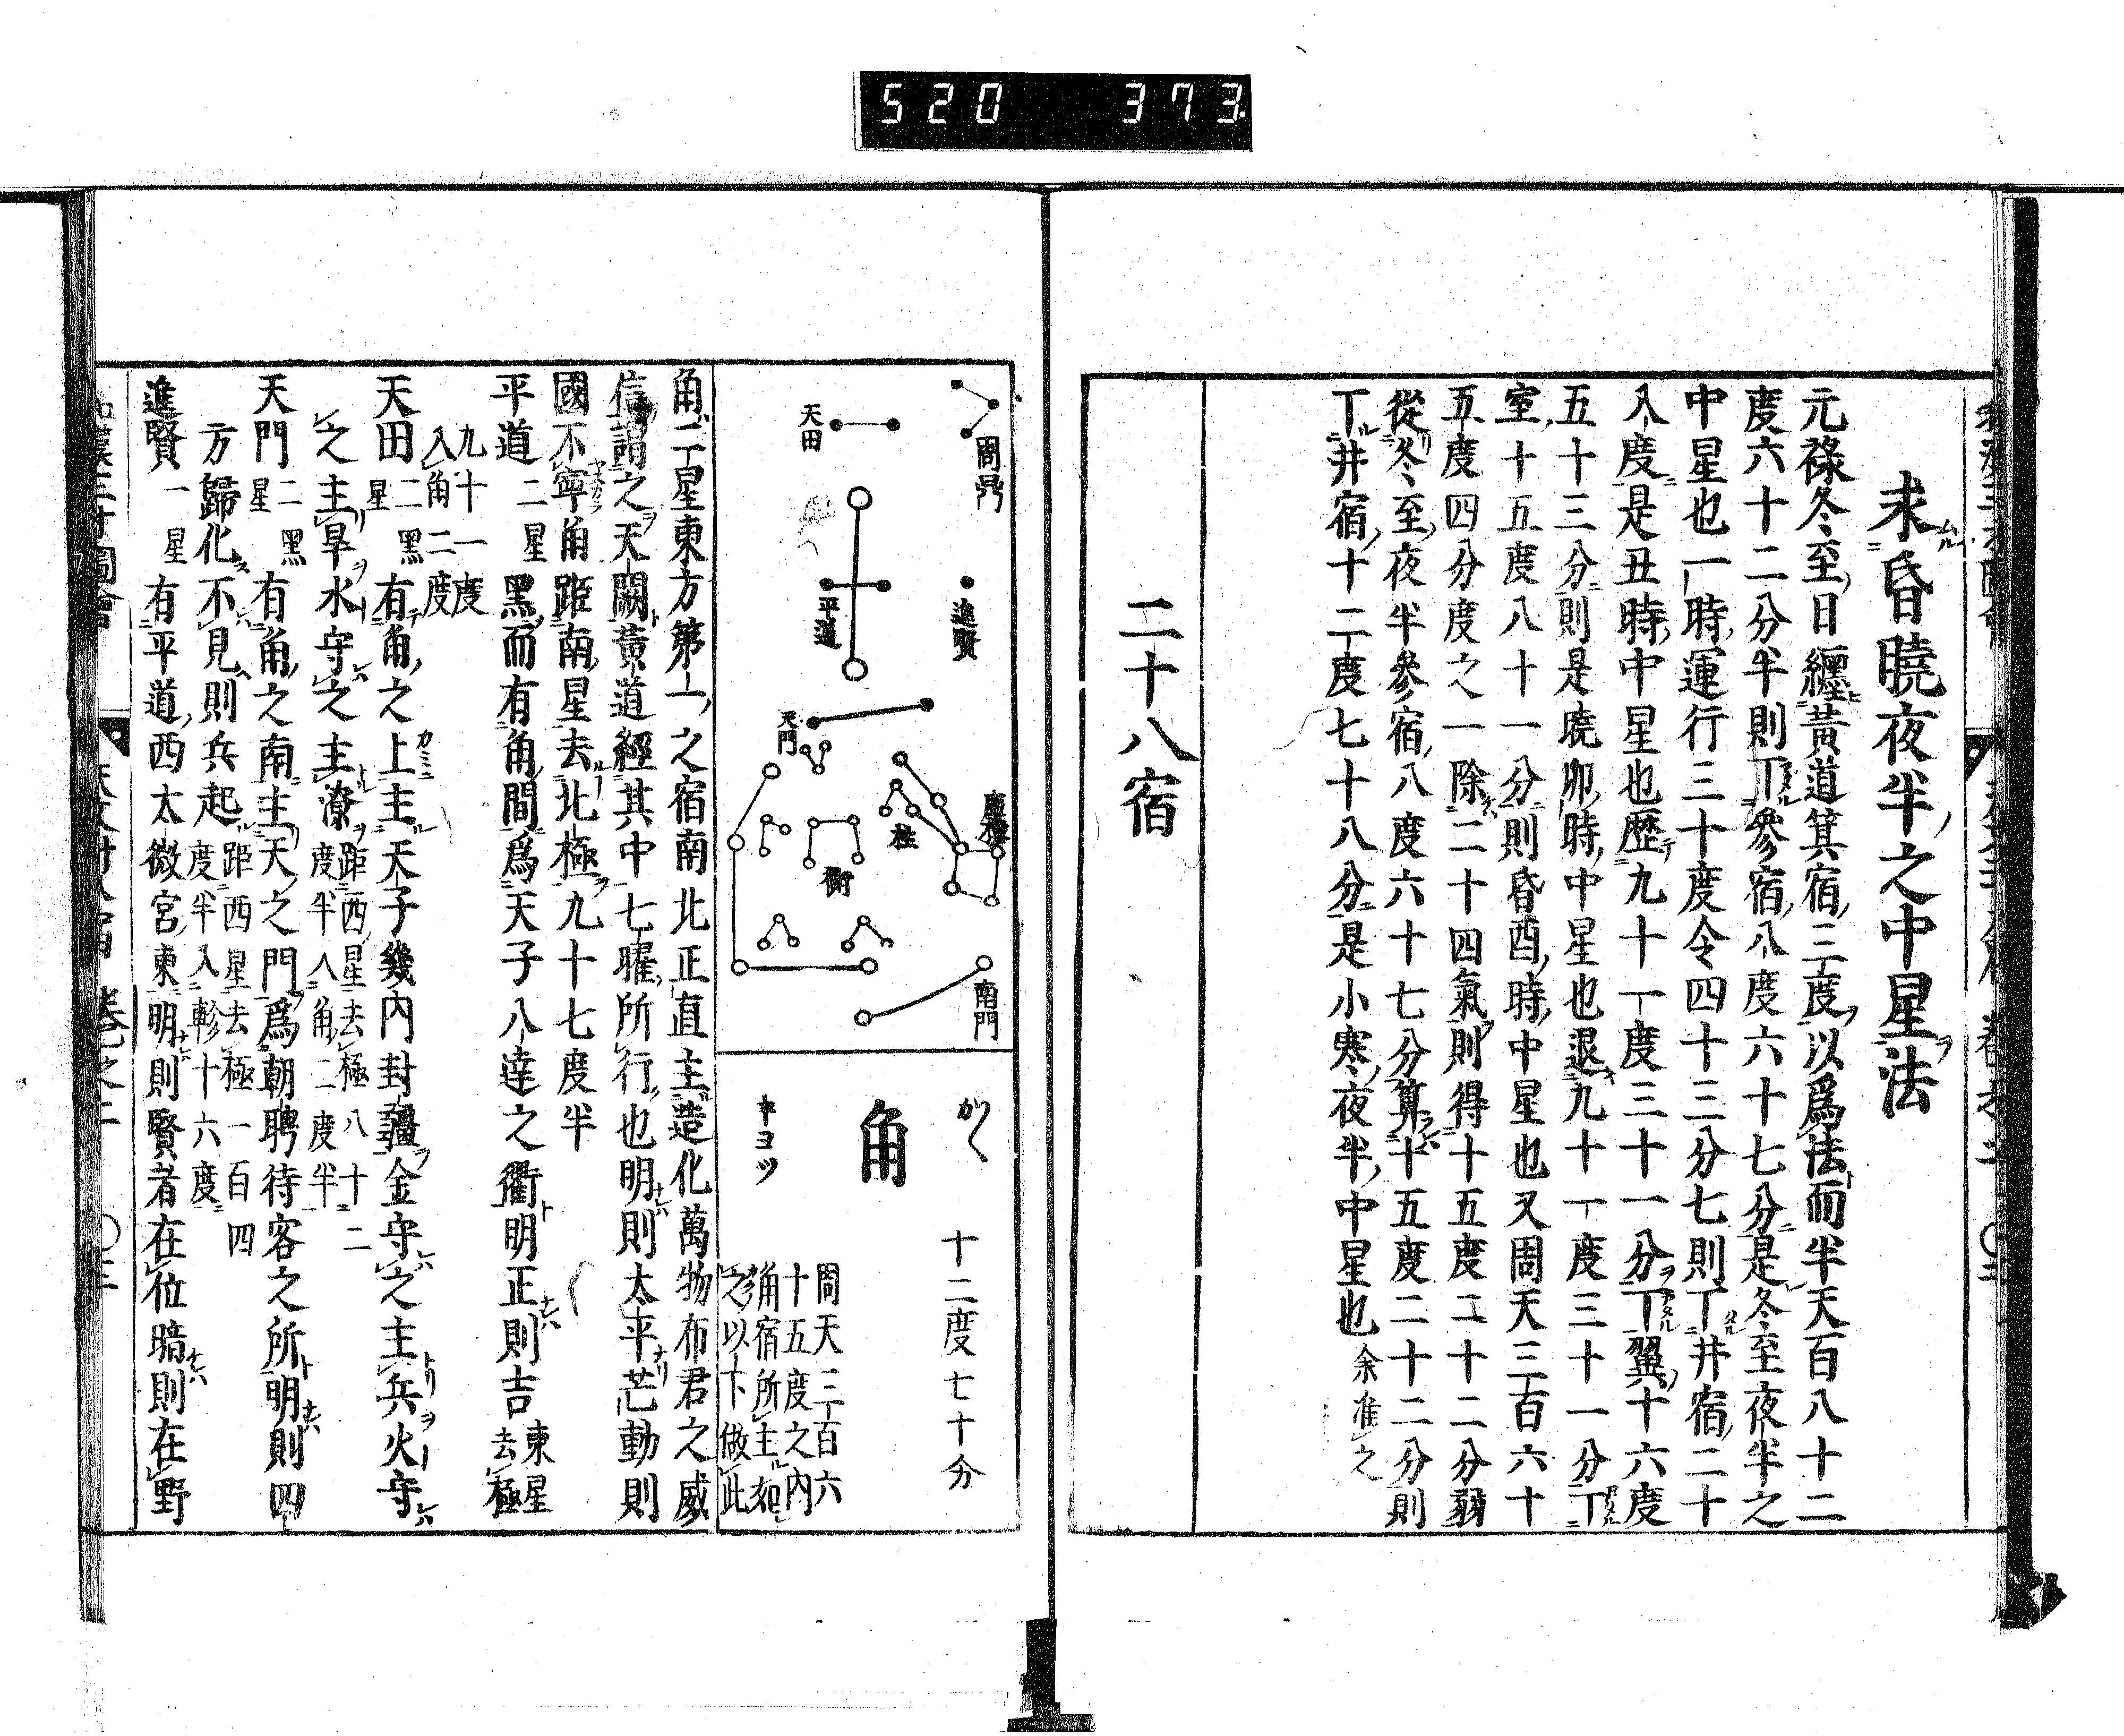 520 373
求昏曉夜半之中星法
元祿冬至日纏黃道箕宿三度以爲法而半天百八十二
度六十二分半則丁參宿八度六十七分是冬至夜半之
中星也一時運行三十度令四十三分七則丁井宿二十
八度是丑時中星也歷九十一度三十一分丁翼十六度
五十三分則是曉卯時中星也退九十一度三十一分丁
室十五度八十一分則昏酉時中星也又周天三百六十
五度四分度之一除二十四氣則得十五度二十二分弱
從冬至夜半參宿八度六十七分算十五度二十二分則
丁井宿十二度七十八分是小寒夜半中星也余准之
二十八宿
周鼎
天田
進賢
平道
天門
庫樓
柱
衡
南門
かく
角
キヨツ
十二度七十分
周天三百六
十五度之內
角宿所主如
此以下倣此
角二星東方第一之宿南北正直主造化萬物布君之威
信謂之天闕黃道經其中七曜所行也明則太平芒動則
國不寧角距南星去北極九十七度半
平道二星黑而有角間爲天子八達之衢明正則吉東星去極
九十一度
入角二度
天田二星黑有角之上主天子幾內封疆金守之主兵火守
之主旱水守之主潦距西星去極八十二度半入角二度半
天門二星黑有角之南主天之門爲朝聘待客之所明則四
方歸化不見則兵起距西星去極一百四度半入軫十六度
進賢一星有平道西太微宮東明則賢者在位暗則在野